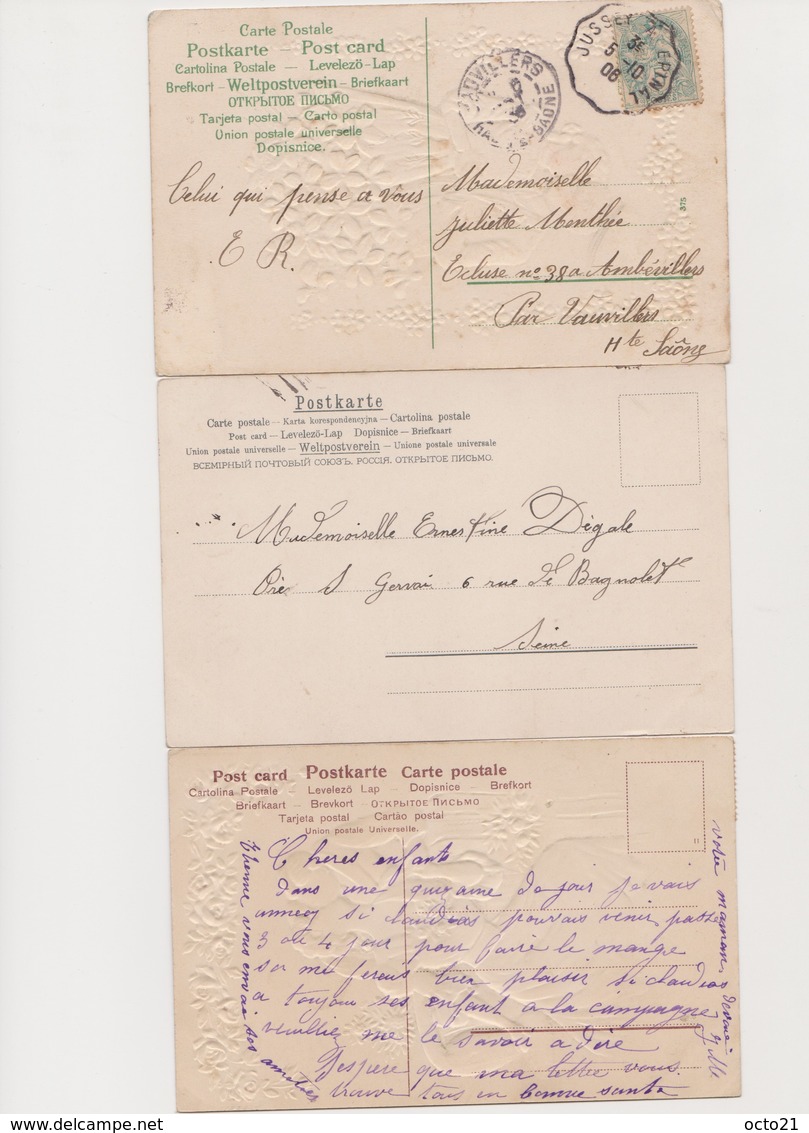 Carte Postale
Postkarte – Post card
Cartolina Postale – Levelező-Lap
Brefkort – Weltpostverein – Briefkaart
ОТКРЫТОЕ ПИСЬМО
Tarjeta postal – Carto postal
Union postale universelle
Dopisnice.
JUSSEY
3E
5-10
06
EPINAL
VAUVILLERS
SAONE
Celui qui pense a vous
E R.
Mademoiselle
Juliette Menthée
Ecluse no 38 a Ambévillers
Par Vauvillers
Hte Saône
375
Postkarte
Carte postale – Karta korespondencyjna – Cartolina postale
Post card – Levelező-Lap Dopisnice – Briefkaart
Union postale universelle – Weltpostverein – Unione postale universale
ВСЕМІРНЫЙ ПОЧТОВЫЙ СОЮЗЪ. РОССІЯ. ОТКРЫТОЕ ПИСЬМО.
Mademoiselle Ernestine Dégale
Prè S Gervai 6 rue de Bagnolet
Seine
Post card Postkarte Carte postale
Cartolina Postale – Levelező Lap – Dopisnice – Brefkort
Briefkaart – Brevkort – ОТКРЫТОЕ ПИСЬМО
Tarjeta postal – Cartão postal
Union postale Universelle.
11
Cheres enfants
dans une quizaine de jour je vais
annecy si claudias pouvais venir passe
3 ou 4 jour pour faire le mange
sa me ferais bien plaisir si claudias
a toujour ses enfant a la campagne
veuillie me le savoir a dire
J'espere que ma lettre vous
trouve tous en bonne santé
votre maman
Etienne vous envoi ses amitier
octo21